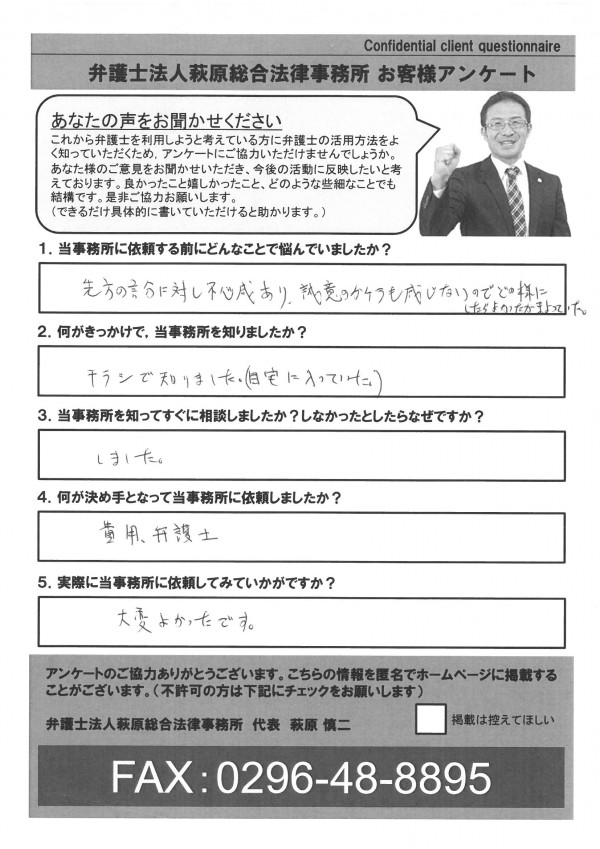 Confidential client questionnaire
弁護士法人萩原総合法律事務所 お客様アンケート
あなたの声をお聞かせください
これから弁護士を利用しようと考えている方に弁護士の活用方法をよ
く知っていただくため，アンケートにご協力いただけませんでしょうか。
あなた様のご意見をお聞かせいただき、今後の活動に反映したいと考
えております。良かったこと嬉しかったこと、どのような些細なことでも
結構です。是非ご協力お願いします。
（できるだけ具体的に書いていただけると助かります。）
１．当事務所に依頼する前にどんなことで悩んでいましたか？
先方の言分に対し不信感あり、誠意のカケラも感じないのでどの様に
したらよいかまよっていた。
２．何がきっかけで，当事務所を知りましたか？
チラシで知りました。(自宅に入っていた。)
３．当事務所を知ってすぐに相談しましたか？しなかったとしたらなぜですか？
しました。
４．何が決め手となって当事務所に依頼しましたか？
費用、弁護士
５．実際に当事務所に依頼してみていかがですか？
大変よかったです。
アンケートのご協力ありがとうございます。こちらの情報を匿名でホームページに掲載する
ことがございます。（不許可の方は下記にチェックをお願いします）
弁護士法人萩原総合法律事務所 代表 萩原 慎二
掲載は控えてほしい
FAX：0296-48-8895